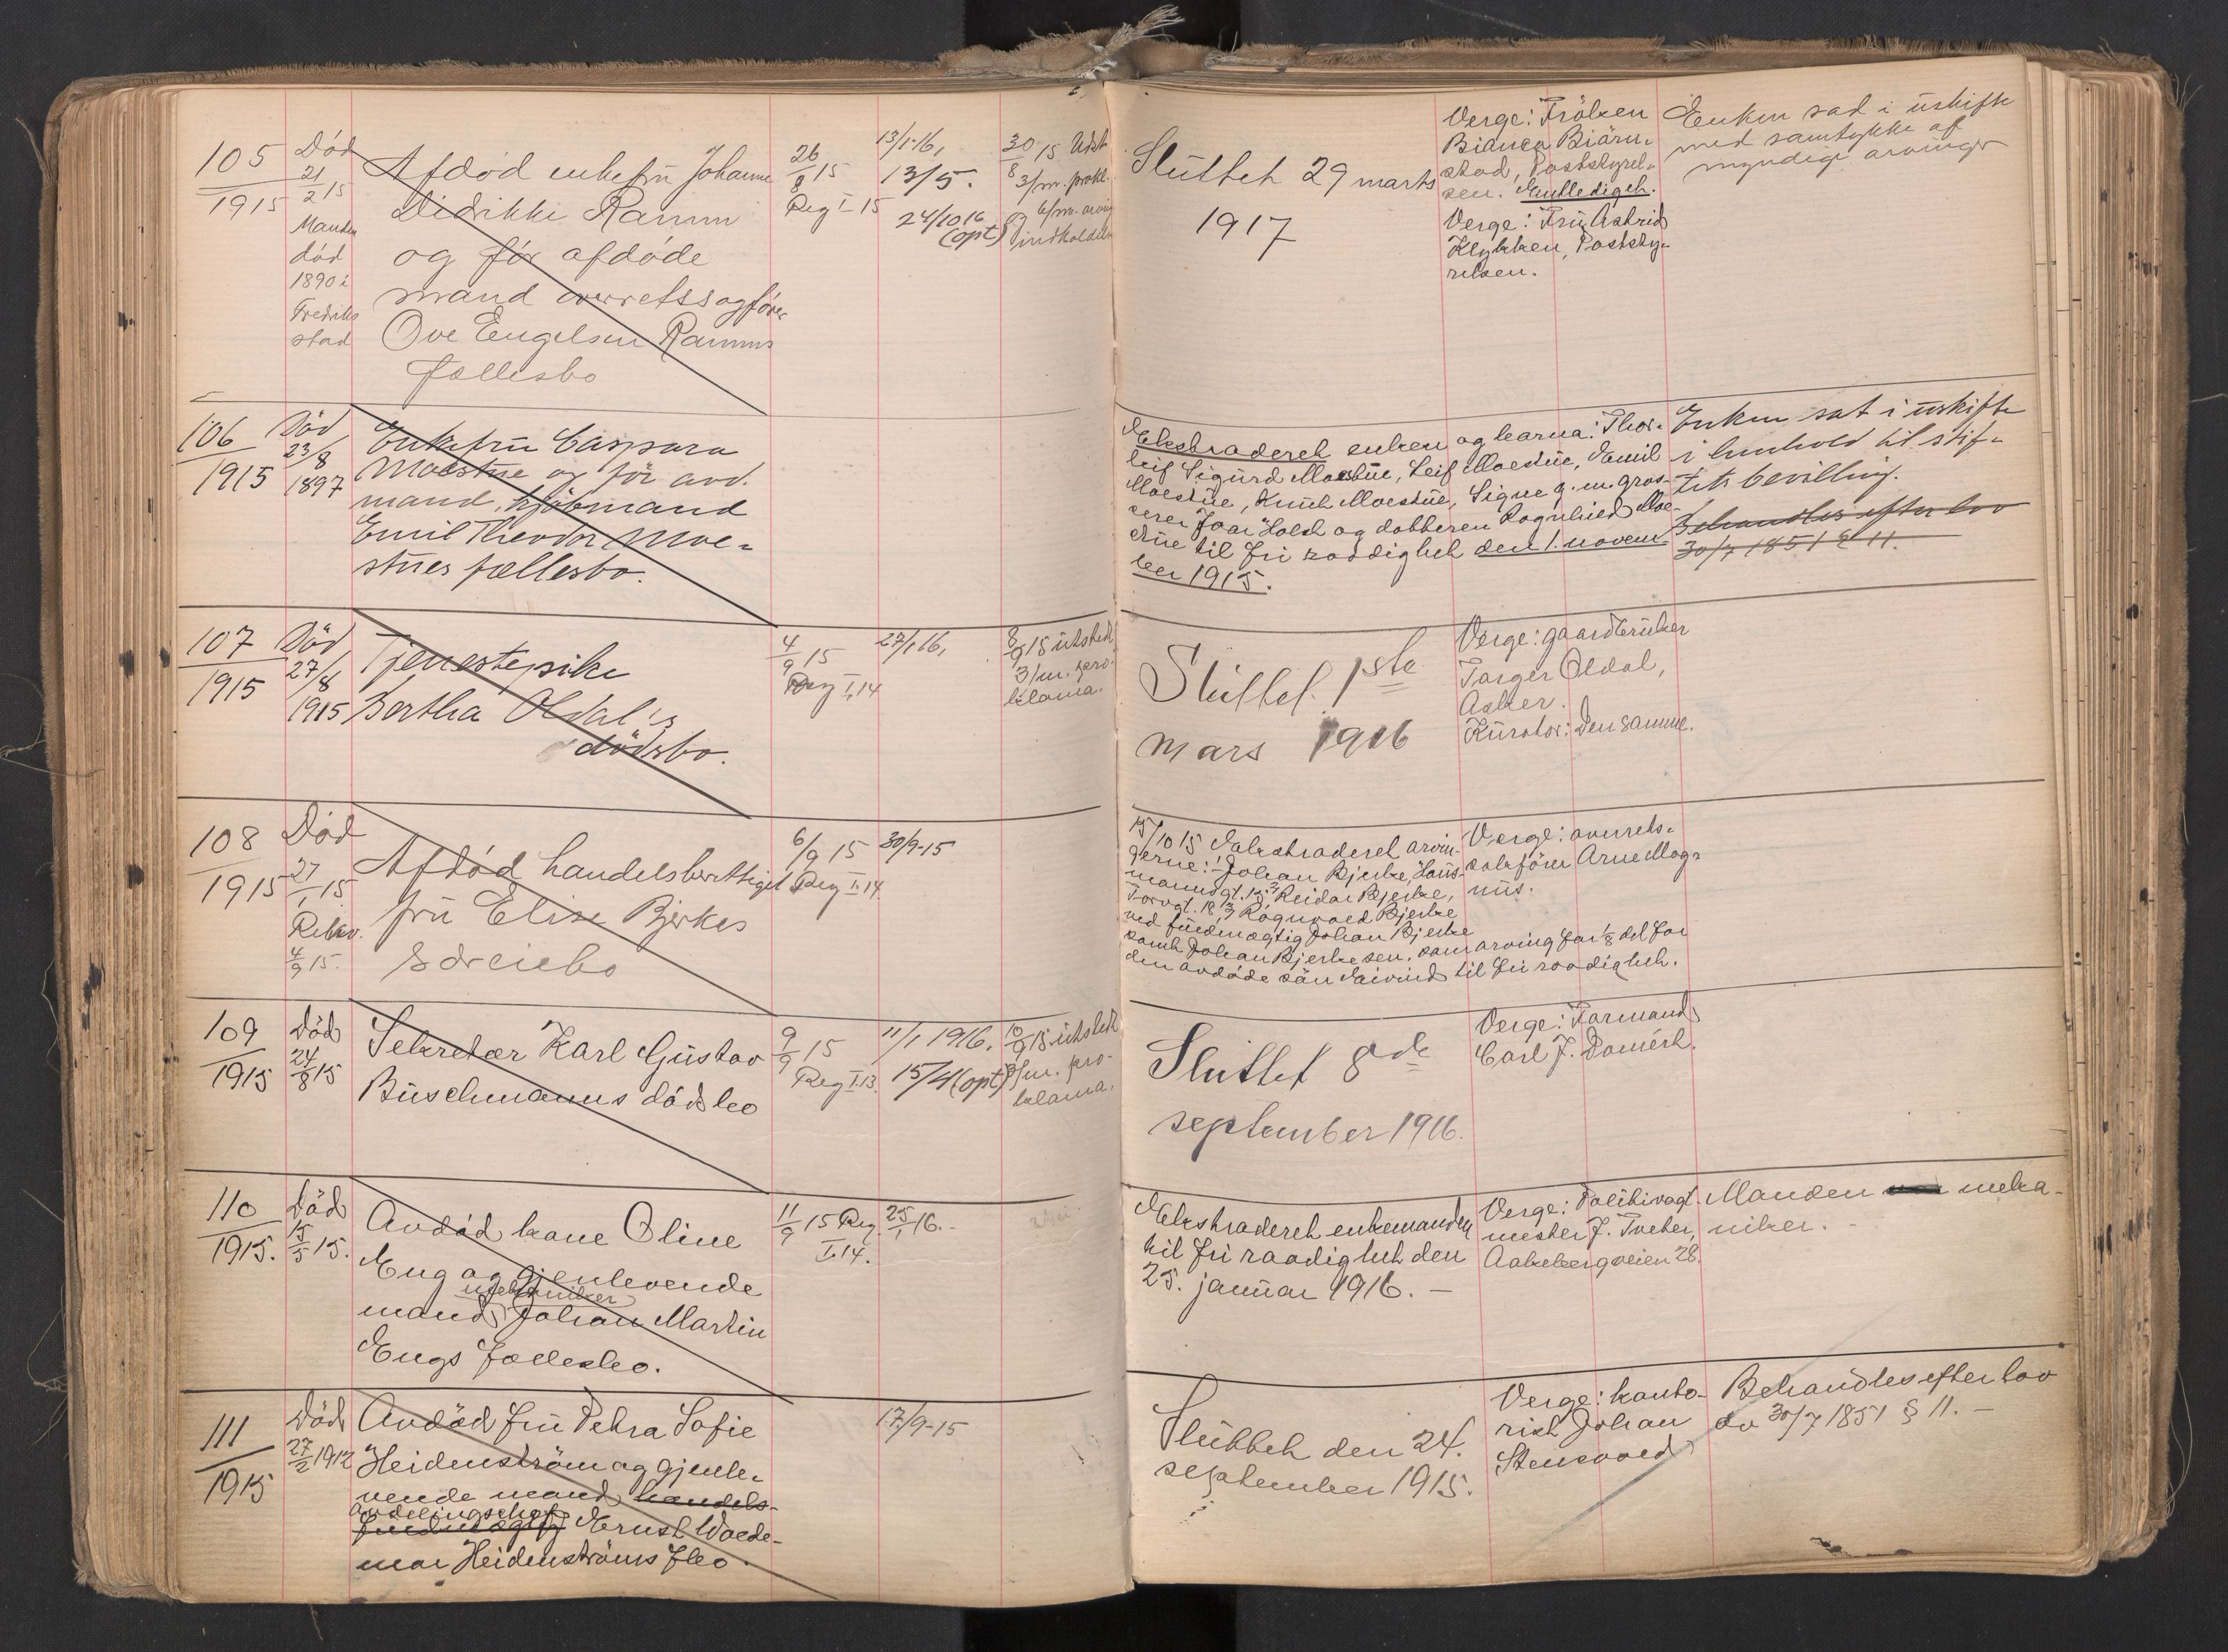 105
1915
Død
21/2 15
Manden
død
1890 i
Fredrik-
stad
Afdød enkefru Johanne
Didrikke Ramm
og før afdøde
mand overretssagfører
Ove Engelsen Ramms
fællesbo
26/8 15
Reg I 15
13/1-16,
13/5.
24/10 16
(opt)
30/8 15 Udst.
3/m. prokl.
og 6/m. arving
indkaldelse
Sluttet 29 marts
1917
Verge: Frøken
Bianca Biørn-
stad, Poststyrel-
sen. Entlediget.
Verge: Fru Astrid
Klykken, Poststy-
relsen.
Enken sad i uskifte
med samtykke af
myndige arvinger
106
1915
Død
23/8
1897
Enkefru Caspara
Moestue og før avd.
mand, kjøbmand
Emil Theodor Moe-
stues fællesbo.
Ekstraderet enken og barna: Thor-
leif Sigurd Moestue, Leif Moestue, Emil
Moestue, Knut Moestue, Signe g. m. gros-
serer Ivar Holst og datteren Ragnhild Moe-
stue til fri raadighet den 1. novem-
ber 1915.
Enken sat i uskifte
i henhold til stif-
tets bevilling.
Behandles efter lov
30/7 1851 § 11.
107
1915
Død
27/8
1915
Tjenestepike
Bertha Oldal's
dødsbo.
4/9 15
Reg I, 14
27/1 16,
8/9 15 utstedt
3/m. pro-
klama.
Sluttet 1ste
mars 1916
Verge: gaardbruker
Torger Oldal,
Asker.
Kurator: Den samme.
108
1915
Død
27/1 15
Rekv.
4/9 15.
Afdød handelsberettiget
fru Elise Bjerkes
særeiebo
6/9 15
Reg I. 14.
30/9-15
15/10 15 Ekstraderet arvin-
gerne: Johan Bjerke, Haus-
mannsgt. 19, Reidar Bjerke,
Torvgt. 18, Ragnvald Bjerke
ved fuldmægtig Johan Bjerke
samt Johan Bjerke sen. som arving for 1/8 del for
den avdøde søn Eivind til fri raadighet.
Verge: overrets-
sakfører Arne Mag-
nus.
109
1915
Død
24/8 15
Sekretær Karl Gustav
Buschmanns dødsbo
9/9 15
Reg I. 13.
11/1 1916.
15/4 (opt)
10/9 15 utstedt
3/m. pro-
klama.
Sluttet 8de
september 1916.
Verge: Formand
Carl J. Damérh.
110
1915.
Død
15/5 15.
Avdød kone Oline
Eng og gjenlevende
mekaniker
mand Johan Martin
Engs fællesbo.
11/9 15 Reg
I. 14.
25/1 16.-
Ekstraderet enkemanden
til fri raadighet den
25. januar 1916. -
Verge: Politivagt-
mester J. Tveter,
Aakebergveien 28.
Manden meka-
niker. -
111
1915
Død
27/2 1912
Avdød fru Petra Sofie
Heidenstrøm og gjenle-
vende mand handels-
avdelingschef
fuldmægtig Ernst Walde-
mar Heidenstrøms fbo.
17/9-15
Sluttet den 24.
september 1915.
Verge: konto-
rist Johan
Stensvold
Behandles efter lov
av 30/7 1851 § 11. -